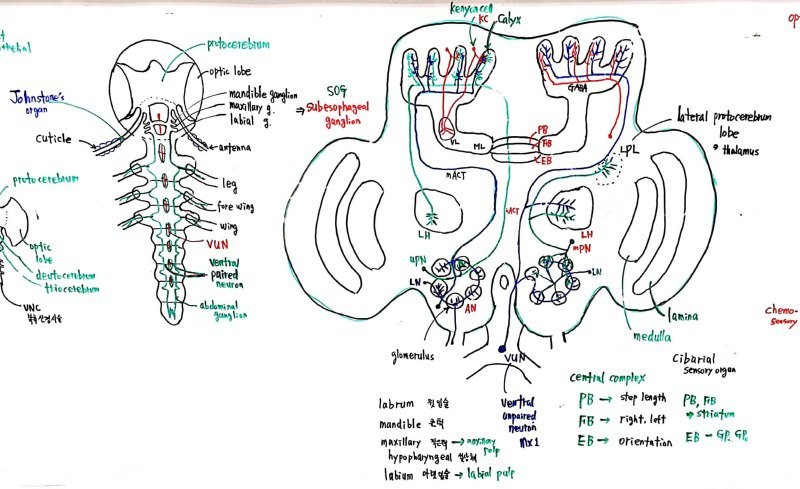 protocerebrum
optic lobe
mandible ganglion
maxillary g.
labial g.
Johnstone's
organ
cuticle
antenna
leg
fore wing
wing
VUN
Ventral
paired
neuron
abdominal
ganglion
protocerebrum
optic
lobe
deutocerebrum
tritocerebrum
VNC
SOG
⇒ Subesophageal
ganglion
kenyon cell
KC
Calyx
GABA
VL
ML
PB
FB
EB
mACT
LPL
lateral protocerebrum
lobe
thalamus
LH
LH
mPN
uPN
LN
LN
AN
glomerulus
VUN
lamina
medulla
op
chemo-
sensory
Cibarial
sensory organ
central complex
PB → step length
PB, FB
FB → right, left
⇒ striatum
EB → orientation
EB -
labrum 윗입술
mandible 큰턱
maxillary 작은턱 → maxillary
palp
hypopharyngeal
labium 아랫입술 → labial pulp
Ventral
unpaired
neuron
mx1